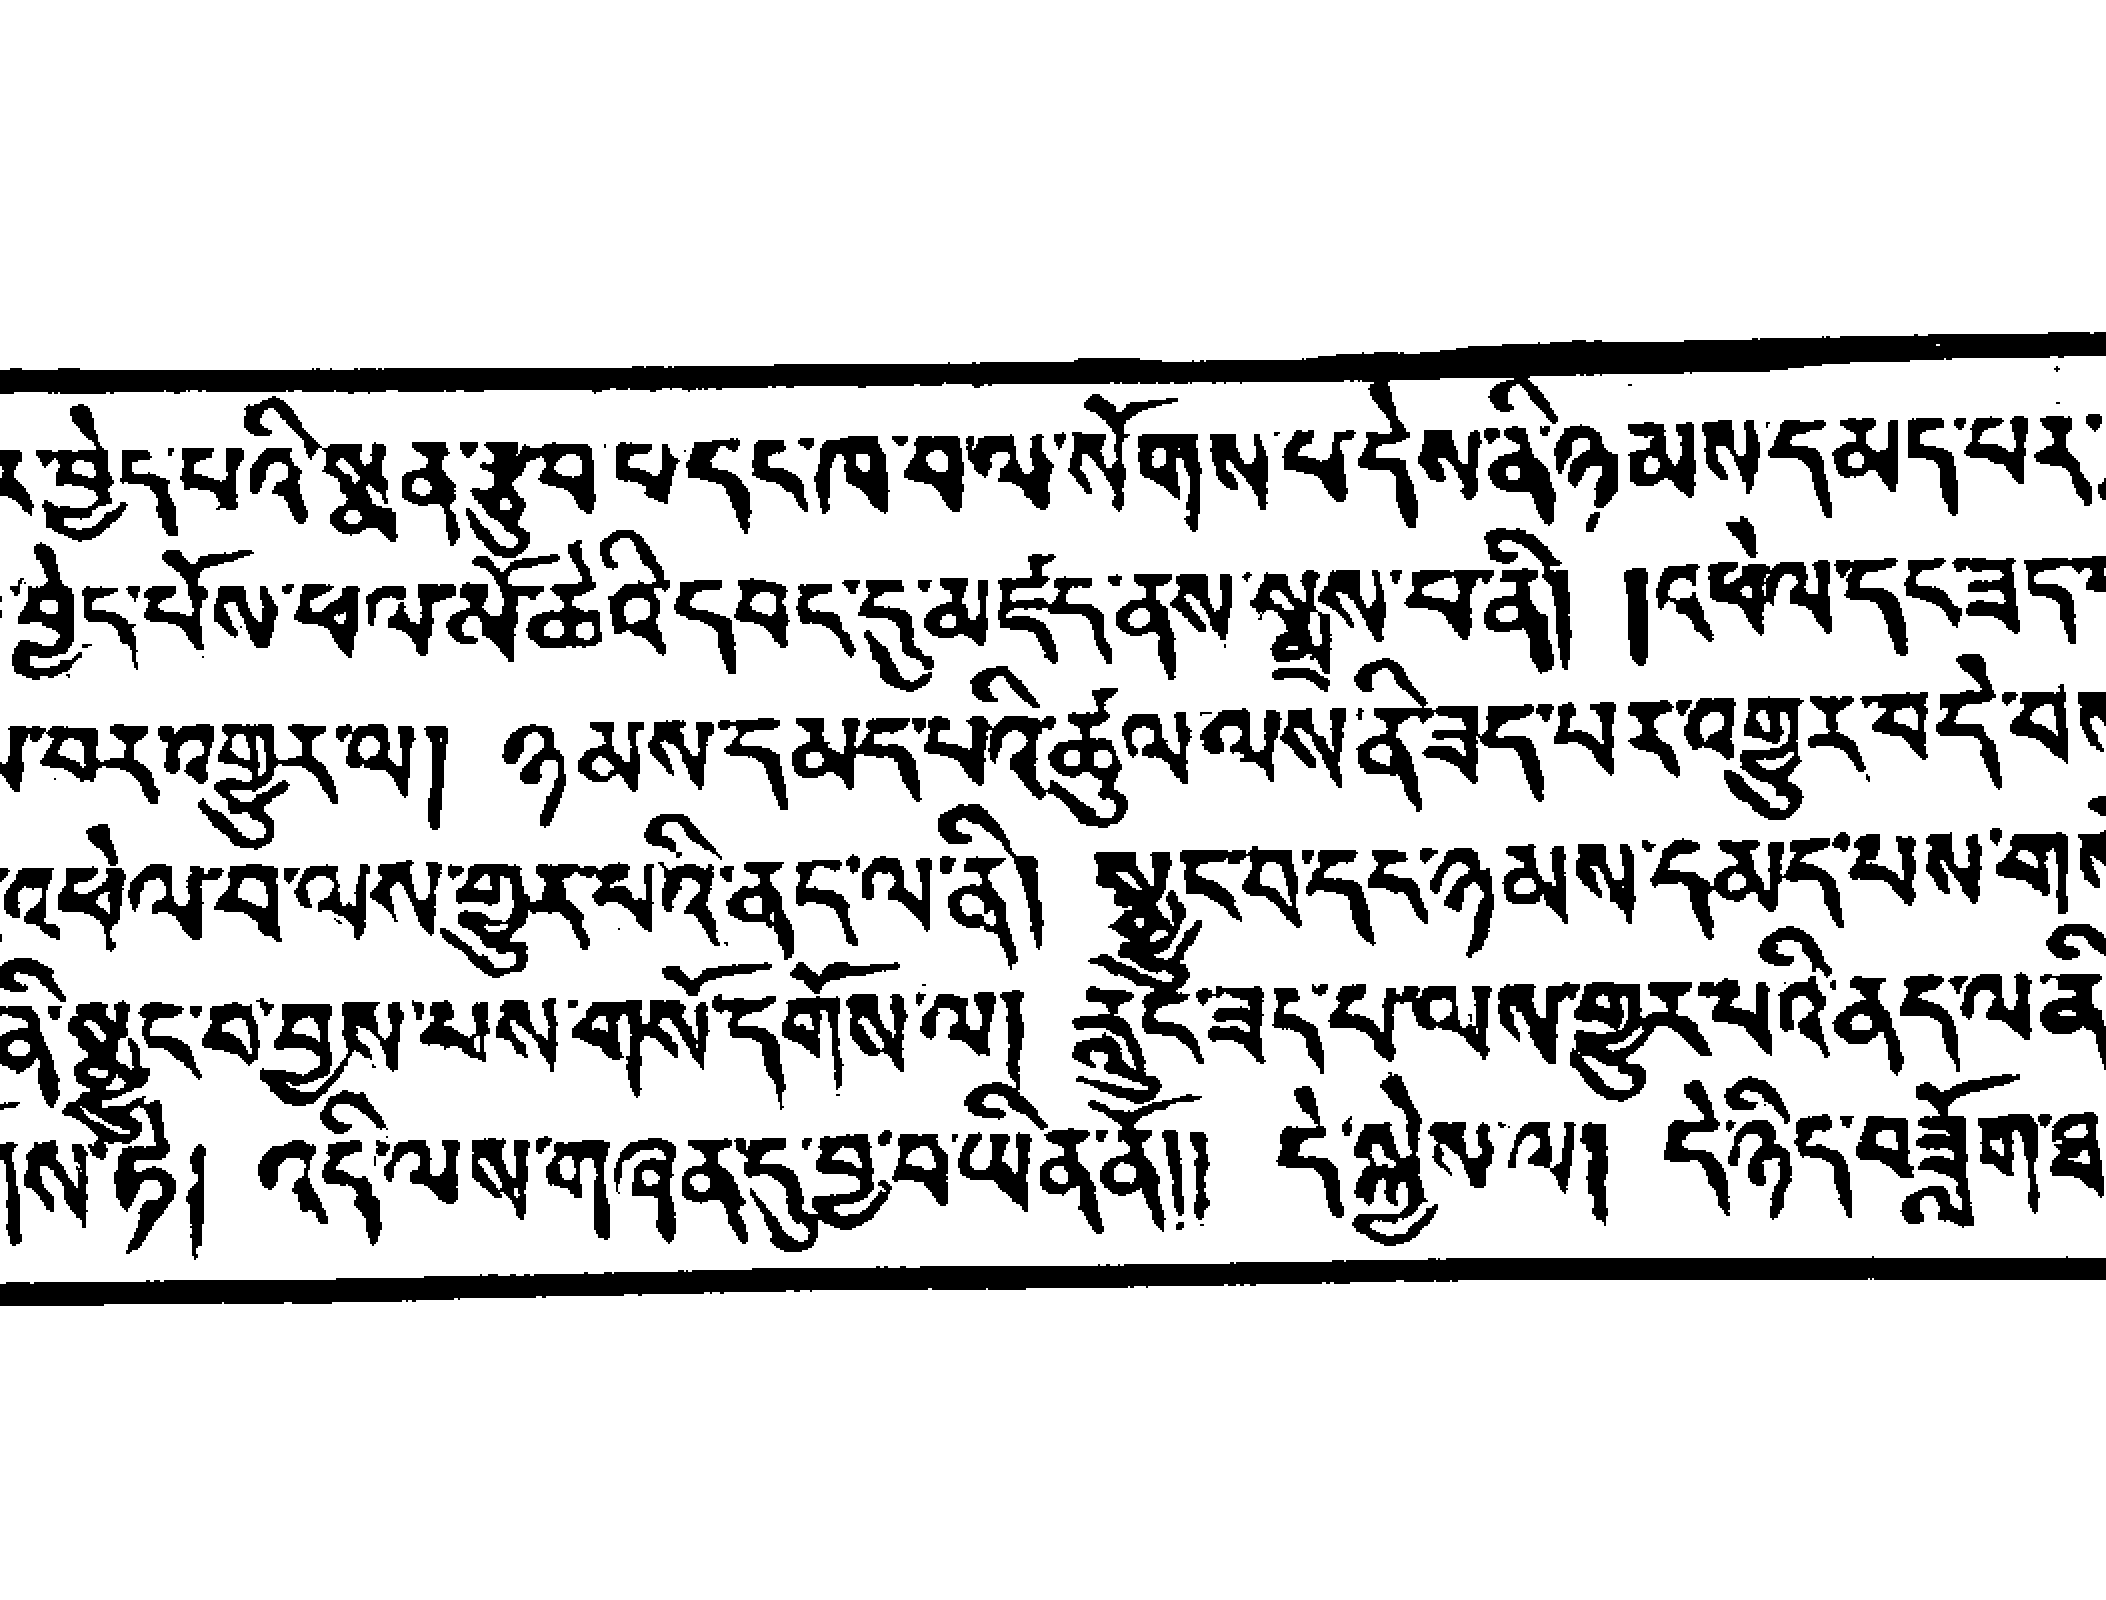 ར་བྱེད་པའི་སྨན་རྩུབ་པ་དང་ཁ་བ་ལ་སོགས་པ་དེས་ནི་ཉམས་དམད་པར་
བྱེད་པོས་ཕལ་མོ་ཆེའི་དབང་དུ་མཛད་ནས་སྨྲས་པ་ནི། །འཕེལ་དང་ཟད་
བར་འགྱུར་ལ། ཉམས་དམད་པའི་ཚུལ་ལས་ནི་ཟད་པར་འགྱུར་བ་དེ་བས
འཕེལ་བ་ལས་གྱུར་པའི་ནད་ལ་ནི། སྦྱང་བ་དང་ཉམས་དམད་པས་གསོ
ནི་སྦྱང་བ་བྱས་པས་གསོ་དགོས་ལ། རླུང་ཟད་པ་ལས་གྱུར་པའི་ནད་ལ་ནི
གས་ཏེ། འདི་ལས་གཞན་དུ་བྱ་བ་ཡིན་ནོ།། དེ་སྐྱེས་ལ། དེ་ཉིད་བཟློག་ཐ